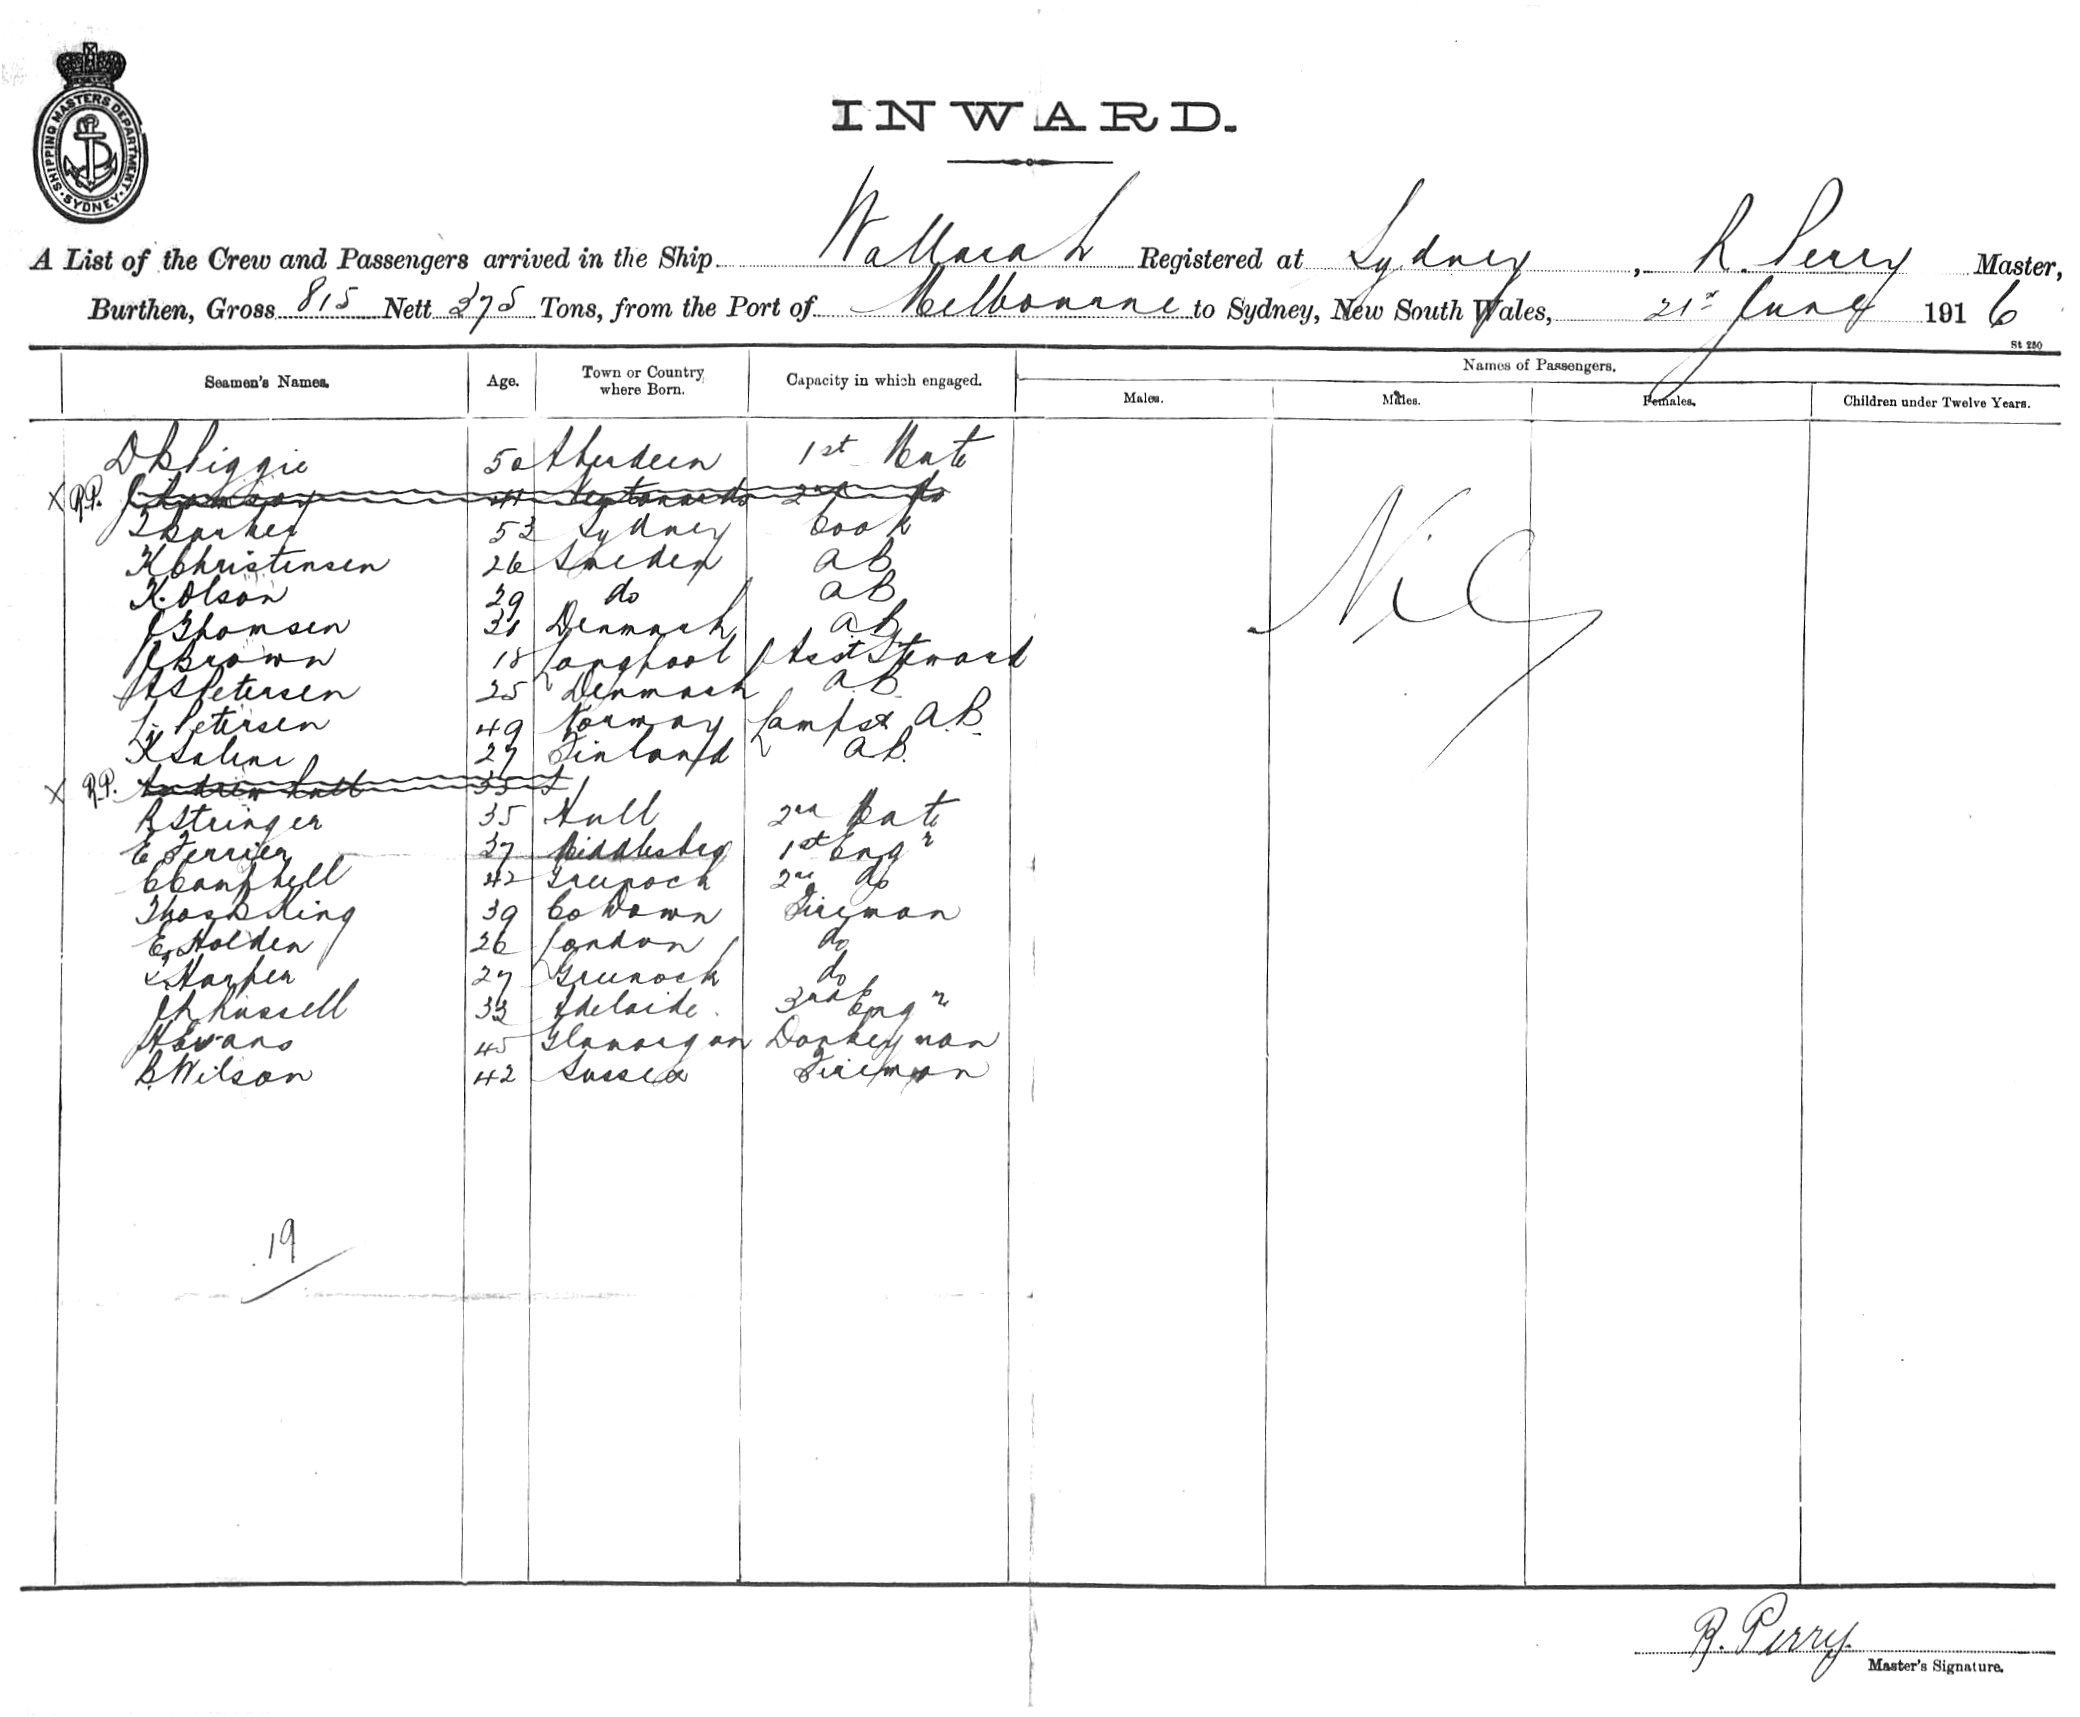 SHIPPING MASTERS DEPARTMENT · SYDNEY ·
INWARD.
A List of the Crew and Passengers arrived in the Ship Wallarah Registered at Sydney, R. Perry Master,
Burthen, Gross 815 Nett 375 Tons, from the Port of Melbourne to Sydney, New South Wales, 21st June 1916
St 250
Seamen's Names. Age. Town or Country where Born. Capacity in which engaged. Names of Passengers.
Males. Males. Females. Children under Twelve Years.
D B Piggie 50 Aberdeen 1st Mate
X R.P. J 41 Newtonards 2nd do
T Barker 53 Sydney Cook
K Christensen 26 Sweden AB
K. Olson 29 do AB
J Thomsen 31 Denmark AB
J Brown 18 Longhool Asst Steward
H S Petersen 25 Denmark AB
L. Petersen 49 Norway Lamps & AB.
K Salini 27 Finland AB.
X R.P. Andrew Hall 35
R Stringer 35 Hull 2nd Mate
E Ferrier 37 Middlesbro 1st Engr
C Campbell 42 Greenock 2nd do
Thos B King 39 Co Down Fireman
E. Holden 26 London do
Harper 27 Greenock do
J R Russell 33 Adelaide. 3rd Engr
H Evans 45 Glamorgan Donkeyman
B. Wilson 42 Sussex Fireman
Nil
19
R. Perry.
Master's Signature.